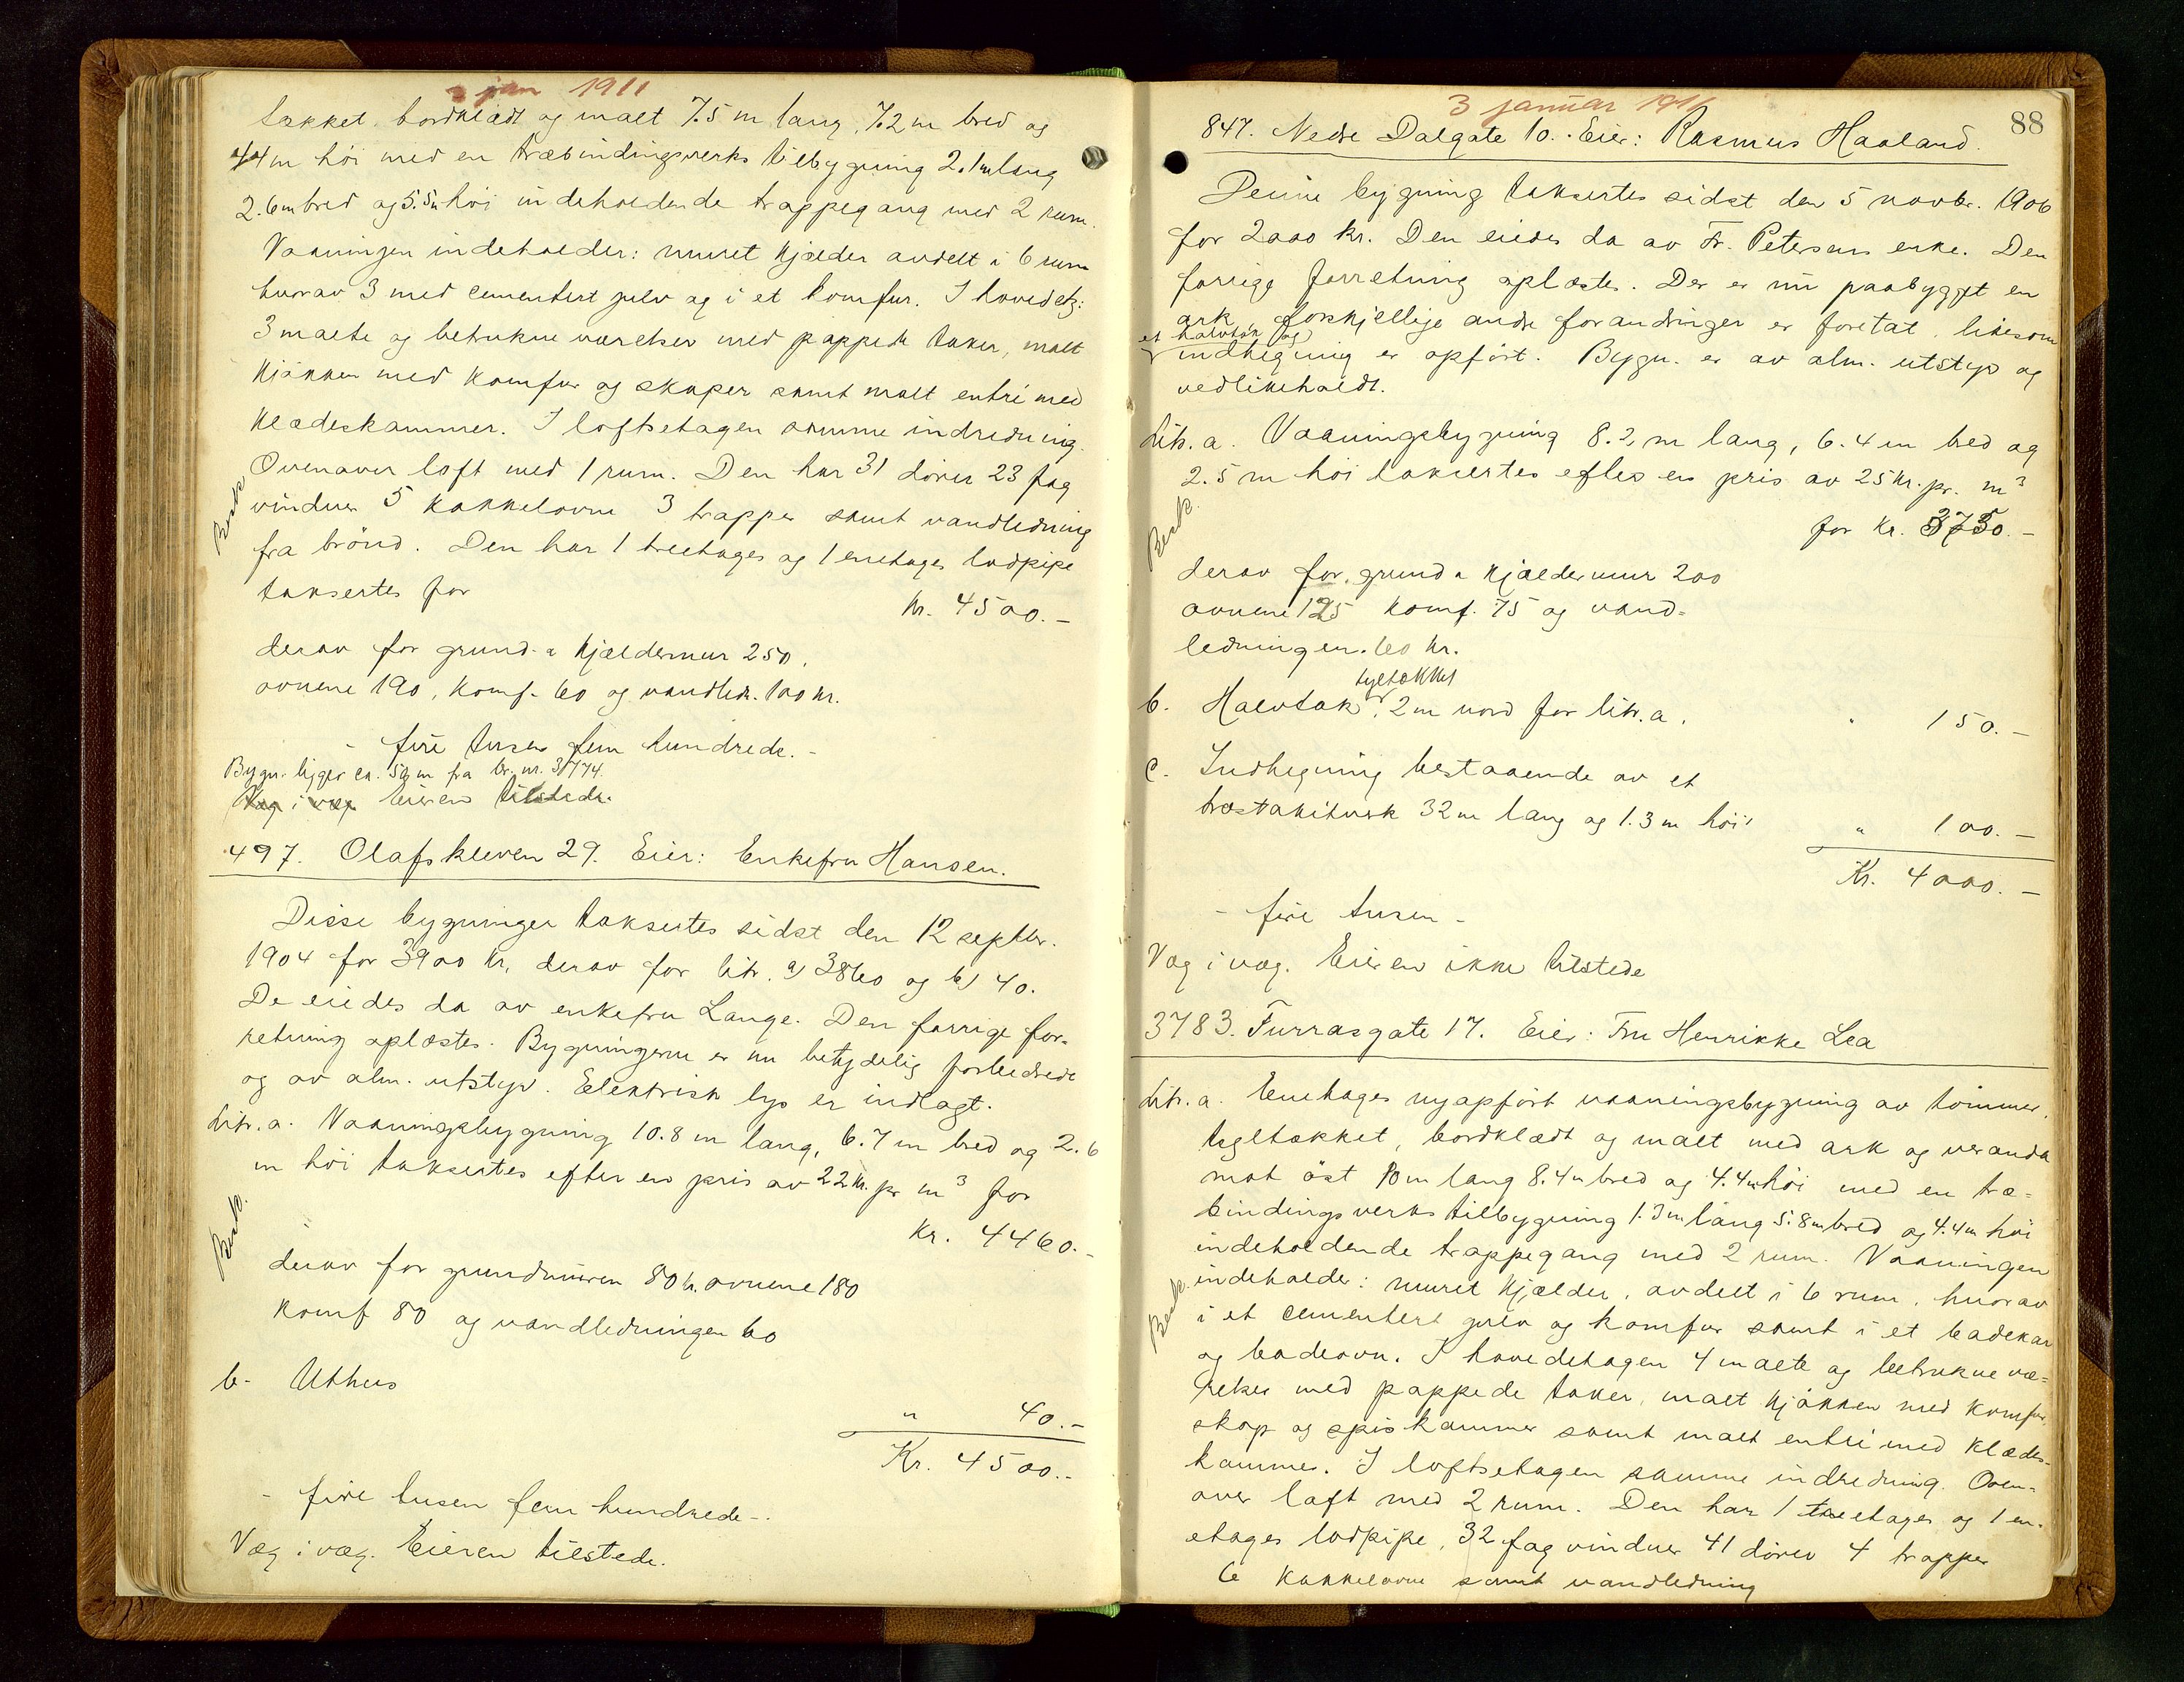 3 jan 1911
tækket, bordklædt og malt 7.5 m lang, 7.2 m bred og
4.4 m høi med en træbindingsverks tilbygning 2.1 m lang
2.6 m bred og 5.5 m høi indeholdende trappegang med 2 rum.
Vaaningen indeholder: muret kjælder avdelt i 6 rum
hvorav 3 med cementert gulv og i et komfur. I hovedetg:
3 malte og betrukne værelser med pappede taker, malt
kjøkken med komfur og skaper samt malt entré med
klædeskammer. I loftsetagen samme indredning.
Ovenover loft med 1 rum. Den har 31 dører 23 fag
Besk.
vinduer 5 kakkelovne 3 trapper samt vandledning
fra brønd. Den har 1 treetages og 1 enetages lodpipe
taksertes for kr. 4500.-
derav for grund- & kjældermur 250,
ovnene 190, komf. 60 og vandledn. 100 kr.
- fire tusen fem hundrede. -
Bygn. ligger ca. 50 m fra br. nr. 3774.
Væg i væg Eieren tilstede.
497. Olafskleven 29. Eier: Enkefru Hansen.
Disse bygninger taksertes sidst den 12 septbr.
1904 for 3900 kr, derav for litr. a) 3860 og b) 40.
De eiedes da av enkefru Lange. Den forrige for-
retning oplæstes. Bygningerne er nu betydelig forbedrede
og av alm. utstyr. Elektrisk lys er indlagt.
Litr. a. Vaaningsbygning 10.8 m lang, 6.7 m bred og 2.6
m høi taksertes efter en pris av 22 kr. pr m³ for
Besk.
kr. 4460.-
derav for grundmuren 80 kr. ovnene 180
komf 80 og vandledningen 60
b- Uthus
" 40.-
Kr. 4500.-
- fire tusen fem hundrede -.
Væg i væg. Eieren tilstede.
3 januar 1911
88
847. Nedre Dalgate 10. Eier: Rasmus Haaland.
Denne bygning taksertes sidst den 5 novbr. 1906
for 2000 kr. Den eiedes da av Fr. Petersens enke. Den
forrige forretning oplæstes. Der er nu paabygget en
ark, forskjellige andre forandringer er foretat, likesom
et halvtak og
indhegning er opført. Bygn. er av alm. utstyr og
vedlikeholdt.
Litr. a. Vaaningsbygning 8.2 m lang, 6.4 m bred og
2.5 m høi taksertes efter en pris av 25 kr. pr. m³
Besk.
for kr. 3750.-
derav for grund & kjældermur 200
ovnene 125 komf. 75 og vand-
ledningen 60 kr.
tegltækket
b. Halvtak, 2 m nord for litr. a. " 150.-
c. Indhegning bestaaende av et
træstakitverk 32 m lang og 1.3 m høi " 100.-
Kr. 4000.-
- fire tusen -
Væg i væg. Eieren ikke tilstede
3783. Furrasgate 17. Eier: Fru Henrikke Lea
Litr. a. Enetages nyopført vaaningsbygning av tømmer,
tegltækket, bordklædt og malt med ark og veranda
mot øst 10 m lang 8.4 m bred og 4.4 m høi med en træ-
bindingsverks tilbygning 1.3 m lang 5.8 m bred og 4.4 m høi
indeholdende trappegang med 2 rum. Vaaningen
Besk.
indeholder: muret kjælder, avdelt i 6 rum, hvorav
i et cementert gulv og komfur samt i et badekar
og badeovn. I hovedetagen 4 malte og betrukne væ-
relser med pappede taker, malt kjøkken med komfur,
skap og spiskammer samt malt entré med klædes-
kammer. I loftsetagen samme indredning. Oven-
over loft med 2 rum. Den har 1 treetages og 1 en-
etages lodpipe, 32 fag vinduer 41 dører 4 trapper
6 kakkelovne samt vandledning